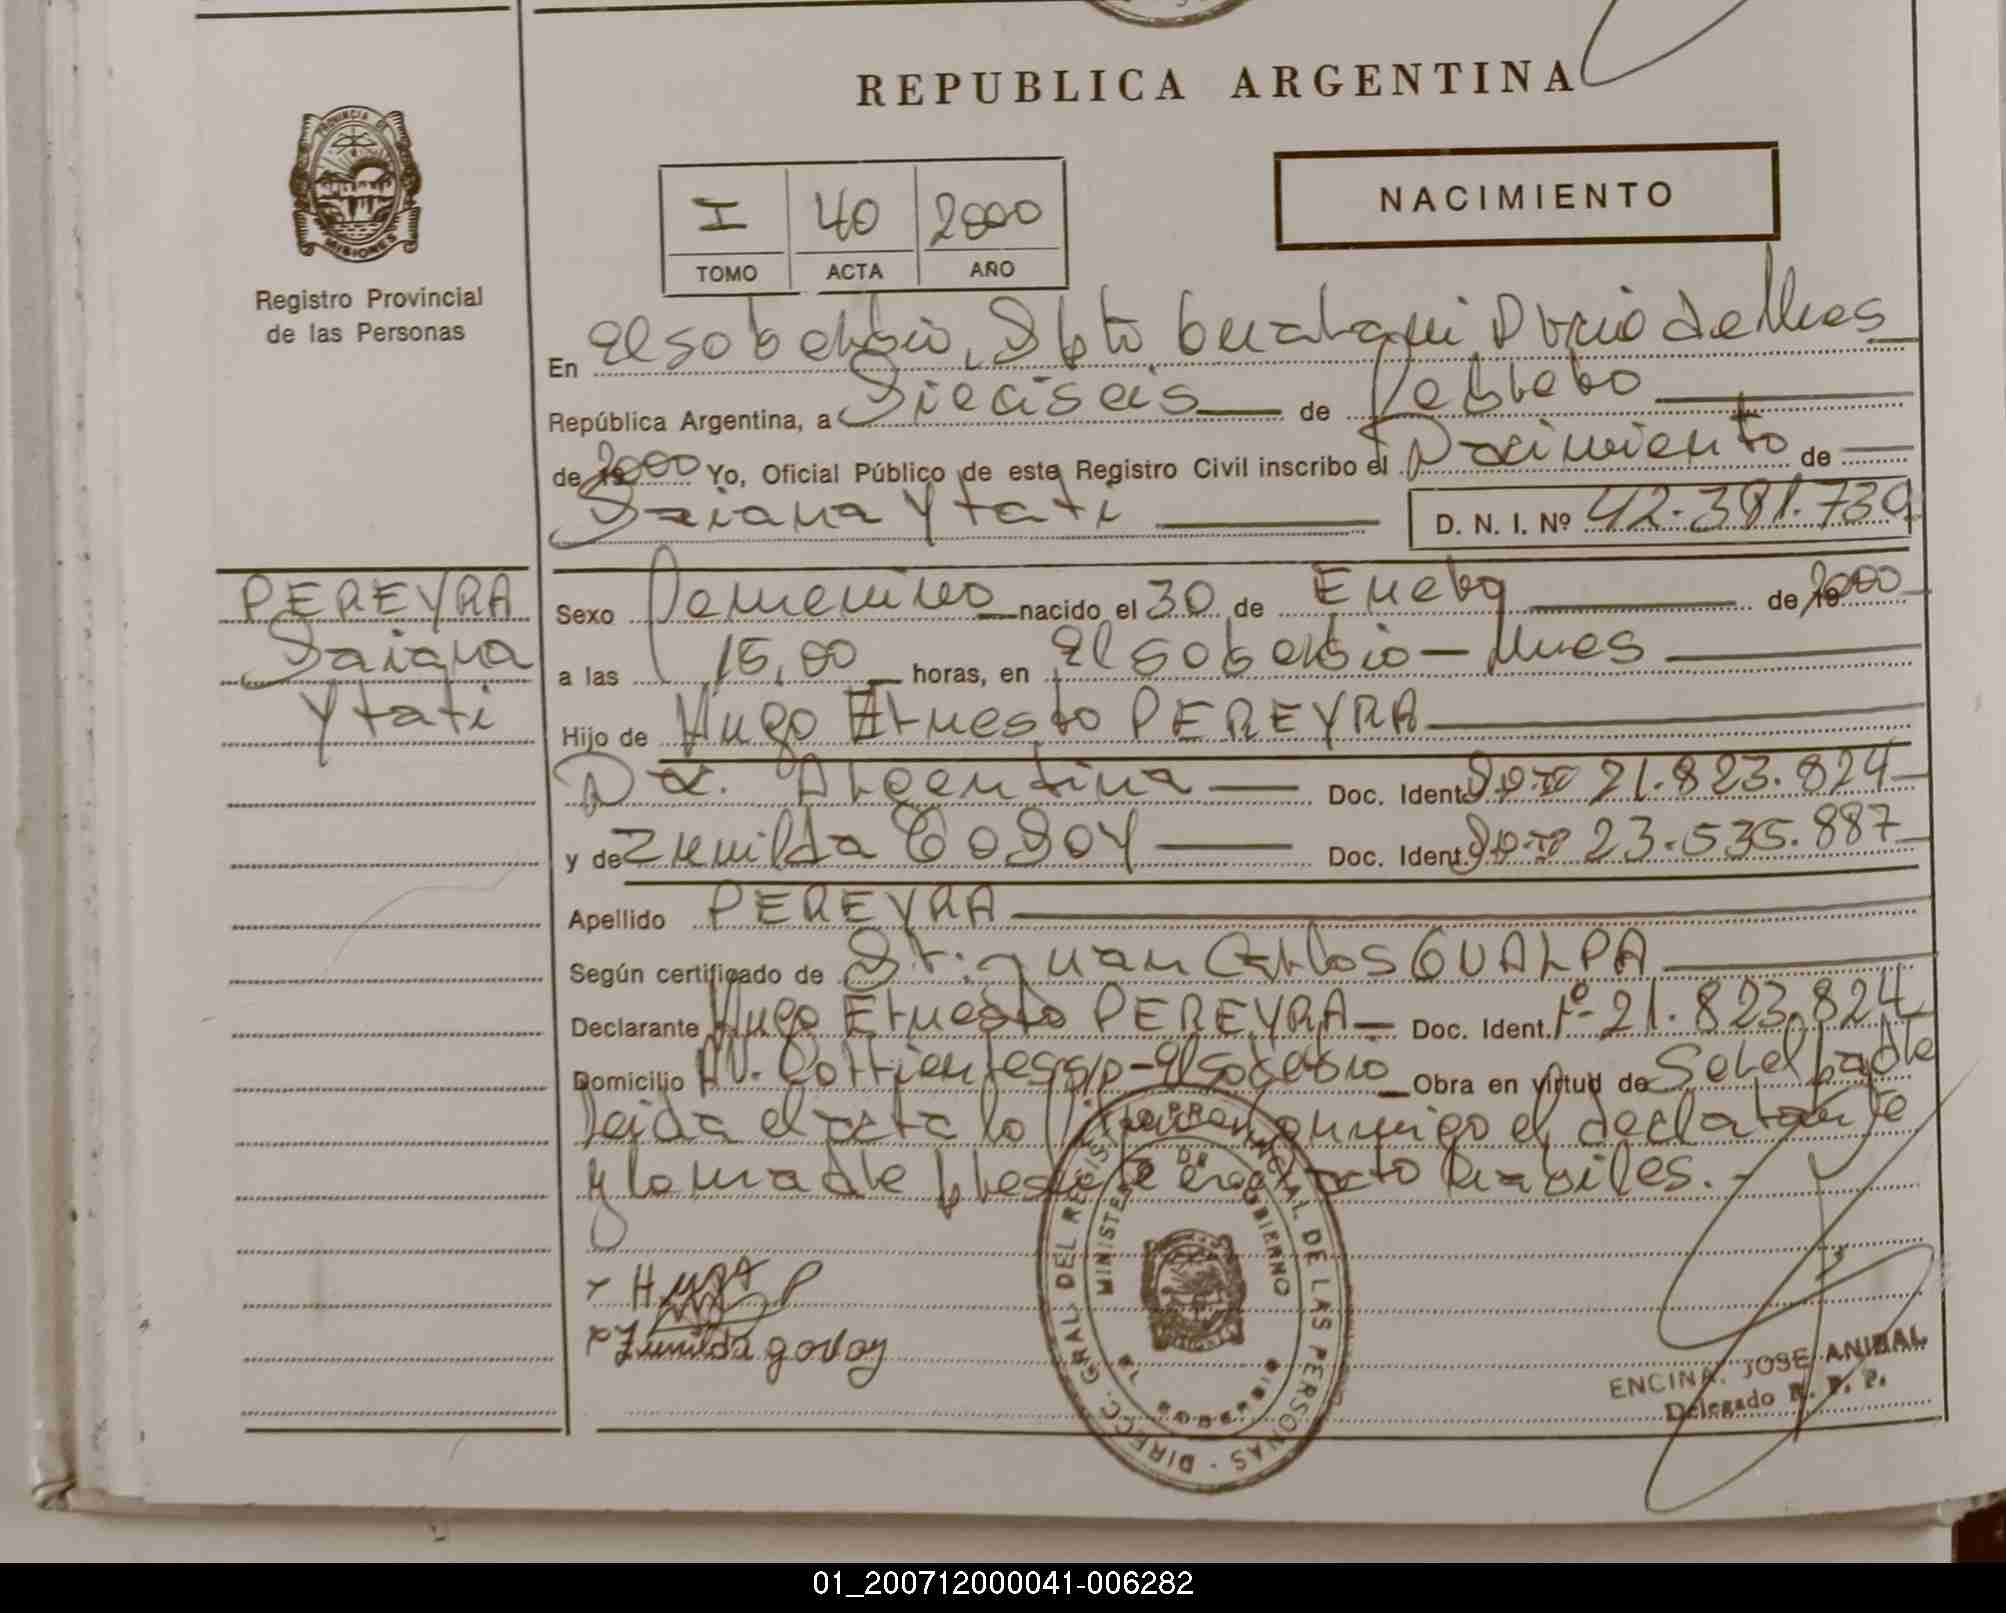 REPUBLICA ARGENTINA
PROVINCIA DE MISIONES
Registro Provincial
de las Personas
NACIMIENTO
I 40 2000
TOMO ACTA AÑO
En El soberbio, Dpto Guarani Pvcio de Mnes
República Argentina, a Dieciseis de Febrero
de 2000 Yo, Oficial Público de este Registro Civil inscribo el Nacimiento de
Daiana Ytati D. N. I. Nº 42.391.739
PEREYRA
Daiana
Ytati
Sexo Femenino nacido el 30 de Enero de 2000
a las 15,00 horas, en El soberbio - Mnes
Hijo de Hugo Ernesto PEREYRA
Na. Argentina Doc. Ident. 21.823.824
y de Zunilda GODOY Doc. Ident. 23.535.887
Apellido PEREYRA
Según certificado de Dr. Juan Carlos GUALPA
Declarante Hugo Ernesto PEREYRA Doc. Ident. 21.823.824
Domicilio AV. Corrientes s/n - El Soberbio Obra en virtud de Ser el padre
leida el acta lo firman conmigo el declarante
y la madre presente en el acto
Hugo P
Zunilda godoy
DIRECC. GRAL. DEL REGISTRO PROVINCIAL DE LAS PERSONAS
MINISTERIO DE GOBIERNO
MISIONES
ENCINA, JOSE ANIBAL
Delegado R. P. P.
01_200712000041-006282